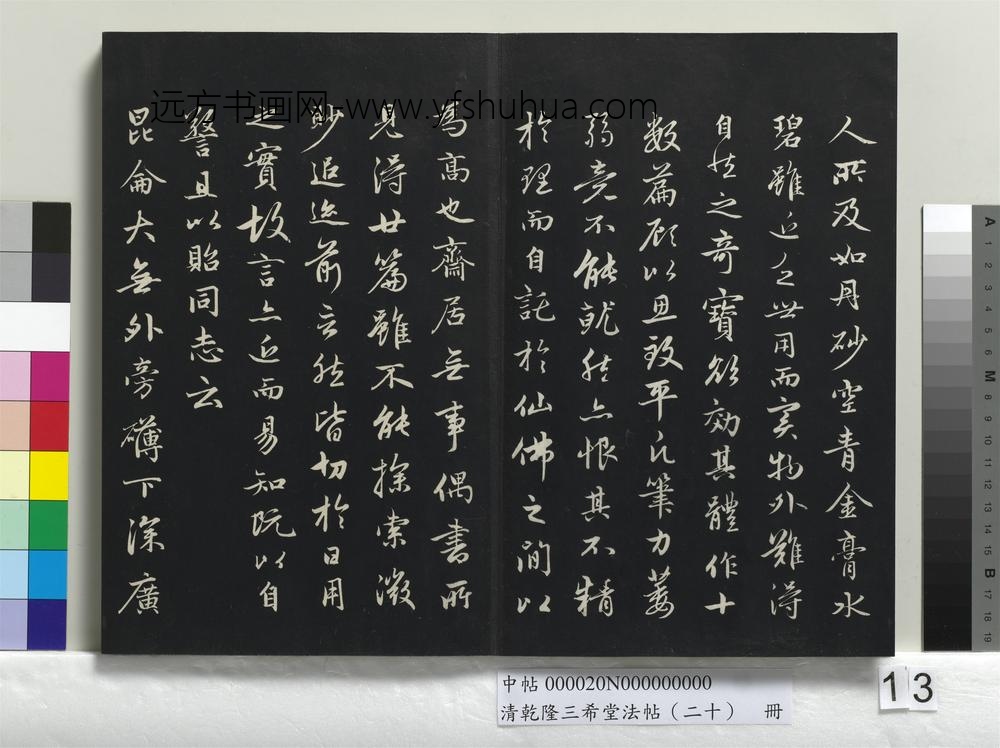 人所及如丹砂空青金膏水
碧雖近乏世用而實物外難得
自然之奇寶欲効其體作十
數篇顧以思致平凡筆力萎
弱竟不能就然亦恨其不精
於理而自託於仙佛之間以
為高也齋居無事偶書所
見得廿篇雖不能探索微
眇追迹前言然皆切於日用
之實故言亦近而易知既以自
警且以貽同志云
昆侖大無外旁礴下深廣
远方书画网-www.yfshuhua.com
中帖 000020N000000000
清乾隆三希堂法帖（二十） 冊
13
A 1 2 3 4 5 6 M 8 9 10 11 12 13 14 15 B 17 18 19